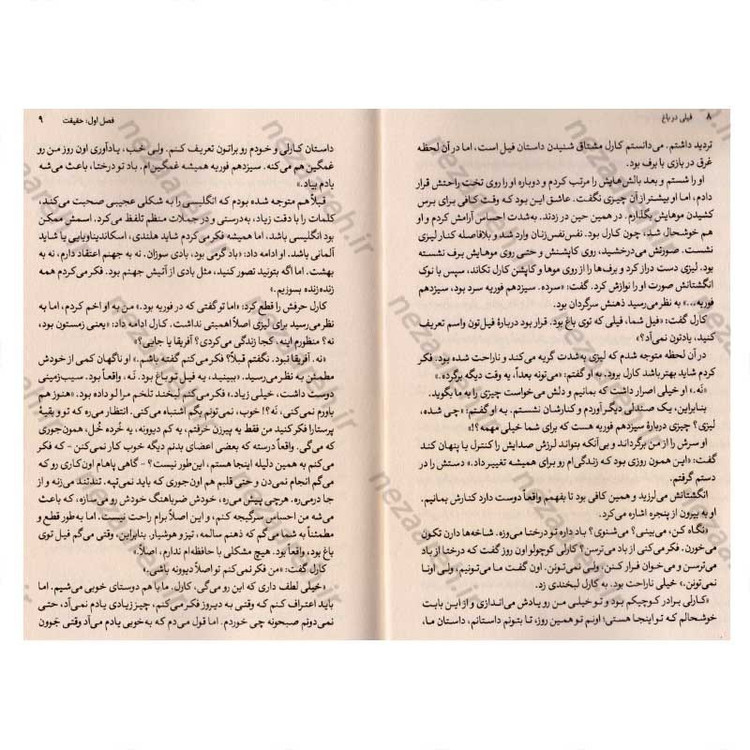 ۸ فیلی در باغ
تردید داشتم. می‌دانستم کارل مشتاق شنیدن داستان فیل است، اما در آن لحظه
غرق در بازی با برف بود.
او را شستم و بعد بالش‌هایش را مرتب کردم و دوباره او را روی تخت راحتش قرار
دادم، اما او بیشتر از آن چیزی نگفت. عاشق این بود که وقت کافی برای برس
کشیدن موهایش بگذارم. در همین حین در زدند. به‌شدت احساس آرامش کردم و او
هم خوشحال شد، چون کارل بود. نفس‌نفس‌زنان وارد شد و بلافاصله کنار لیزی
نشست. صورتش می‌درخشید، روی کاپشنش و حتی روی موهایش برف نشسته
بود. لیزی دست دراز کرد و برف‌ها را از روی موها و کاپشن کارل تکاند، سپس با نوک
انگشتانش صورت او را نوازش کرد. گفت: «سرده. سیزدهم فوریه سرد بود، سیزدهم
فوریه...» به نظر می‌رسید ذهنش سرگردان بود.
کارل گفت: «فیل شما، فیلی که توی باغ بود. قرار بود دربارهٔ فیل‌تون واسم تعریف
کنید، یادتون نمی‌آد؟»
در آن لحظه متوجه شدم که لیزی به‌شدت گریه می‌کند و ناراحت شده بود. فکر
کردم شاید بهتر باشد کارل برود. به او گفتم: «می‌تونه بعداً، یه وقت دیگه برگرده.»
«نَه.» او خیلی اصرار داشت که بمانیم و دلش می‌خواست چیزی را به ما بگوید.
بنابراین، یک صندلی دیگر آوردم و کنارشان نشستم. به او گفتم: «چی شده،
لیزی؟ چیزی دربارهٔ سیزدهم فوریه هست که برای شما خیلی مهمه؟!»
او سرش را از من برگرداند و بی‌آنکه بتواند لرزش صدایش را کنترل یا پنهان کند
گفت: «این همون روزی بود که زندگی‌ام رو برای همیشه تغییر داد.» دستش را در
دستم گرفتم.
انگشتانش می‌لرزید و همین کافی بود تا بفهمم واقعاً دوست دارد کنارش بمانیم.
او به بیرون از پنجره اشاره می‌کرد.
«نگاه کن، می‌بینی؟ می‌شنوی؟ باد داره تو درختا می‌وزه. شاخه‌ها دارن تکون
می‌خورن. فکر می‌کنی از باد می‌ترسن؟ کارلی کوچولو اون روز گفت که درختا از باد
می‌ترسن و می‌خوان فرار کنن، ولی نمی‌تونن. اون گفت ما می‌تونیم، ولی اونا
نمی‌تونن.» خیلی ناراحت بود. به کارل لبخندی زد.
«کارلی برادر کوچیکم بود و تو خیلی من رو یادش می‌اندازی و از این بابت
خوشحالم که تو اینجا هستی؛ اونم تو همین روز، تا بتونم داستانم، داستان ما،
فصل اول: حقیقت ۹
داستان کارلی و خودم رو براتون تعریف کنم. ولی خب، یادآوری اون روز من رو
غمگین هم می‌کنه. سیزدهم فوریه همیشه غمگین‌ام. باد تو درختا، باعث می‌شه
یادم بیاد.»
قبلاً هم متوجه شده بودم که انگلیسی را به شکلی عجیبی صحبت می‌کند،
کلمات را با دقت زیاد، به‌درستی و در جملات منظم تلفظ می‌کرد. اسمش ممکن
بود انگلیسی باشد، اما همیشه فکر می‌کردم شاید هلندی، اسکاندیناویایی یا شاید
آلمانی باشد. او ادامه داد: «باد گرمی بود، بادی سوزان. نه به جهنم اعتقاد دارم، نه به
بهشت. اما اگه بتونید تصور کنید، مثل بادی از آتیش جهنم بود. فکر می‌کردم همه
زنده‌زنده بسوزیم.»
کارل حرفش را قطع کرد: «اما تو گفتی که در فوریه بود.» من به او اخم کردم، اما به
نظر می‌رسید برای لیزی اصلاً اهمیتی نداشت. کارل ادامه داد: «یعنی زمستون بود،
نه؟ منظورم اینه، کجا زندگی می‌کردی؟ آفریقا یا جایی؟»
«نه. آفریقا نبود. نگفتم قبلاً؟ فکر می‌کنم گفته باشم.» او ناگهان کمی از خودش
مطمئن به نظر می‌رسید. «ببینید، یه فیل تو باغ بود. نَه، واقعاً بود. سیب‌زمینی
دوست داشت، خیلی زیاد.» فکر می‌کنم لبخند تلخم مرا لو داده بود. «هنوز هم
باورم نمی‌کنی، نَه؟! خوب، نمی‌تونم بگم اشتباه می‌کنی. انتظار می‌ره که تو و بقیهٔ
پرستارا فکر کنید من فقط یه پیرزن خرفتم، یه کم دیوونه، یه خُرده خُل، همون‌جوری
که می‌گی. واقعاً درسته که بعضی اعضای بدنم دیگه خوب کار نمی‌کنن - که فکر
می‌کنم به همین دلیله اینجا هستم، این‌طور نیست؟ - گاهی پاهام اون کاری رو که
می‌گم انجام نمی‌دن و حتی قلبم هم اون‌جوری که باید نمی‌تپه. تندتند می‌زنه و از
جا درمی‌ره. هرچی پیش می‌ره، خودش ضرباهنگ خودش رو می‌سازه، که باعث
می‌شه من احساس سرگیجه کنم، و این اصلاً برام راحت نیست. اما به‌طور قطع و
مطمئناً به شما می‌گم که ذهنم سالمه، تیز و هوشیار. بنابراین، وقتی می‌گم فیل توی
باغ بود، واقعاً بود. هیچ مشکلی با حافظه‌ام ندارم، اصلاً.»
کارل گفت: «من فکر نمی‌کنم تو اصلاً دیوونه باشی.»
«خیلی لطف داری که این رو می‌گی، کارل. ما با هم دوستای خوبی می‌شیم. اما
باید اعتراف کنم که وقتی به دیروز فکر می‌کنم، چیز زیادی یادم نمی‌آد، حتی
نمی‌دونم صبحونه چی خوردم. اما قول می‌دم که به‌خوبی یادم می‌آد وقتی جَوون
nezaareh.ir